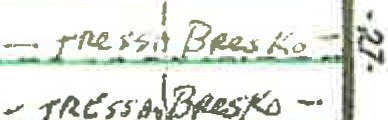 - TRESSA BRESKO -
- TRESSA BRESKO -
-27-